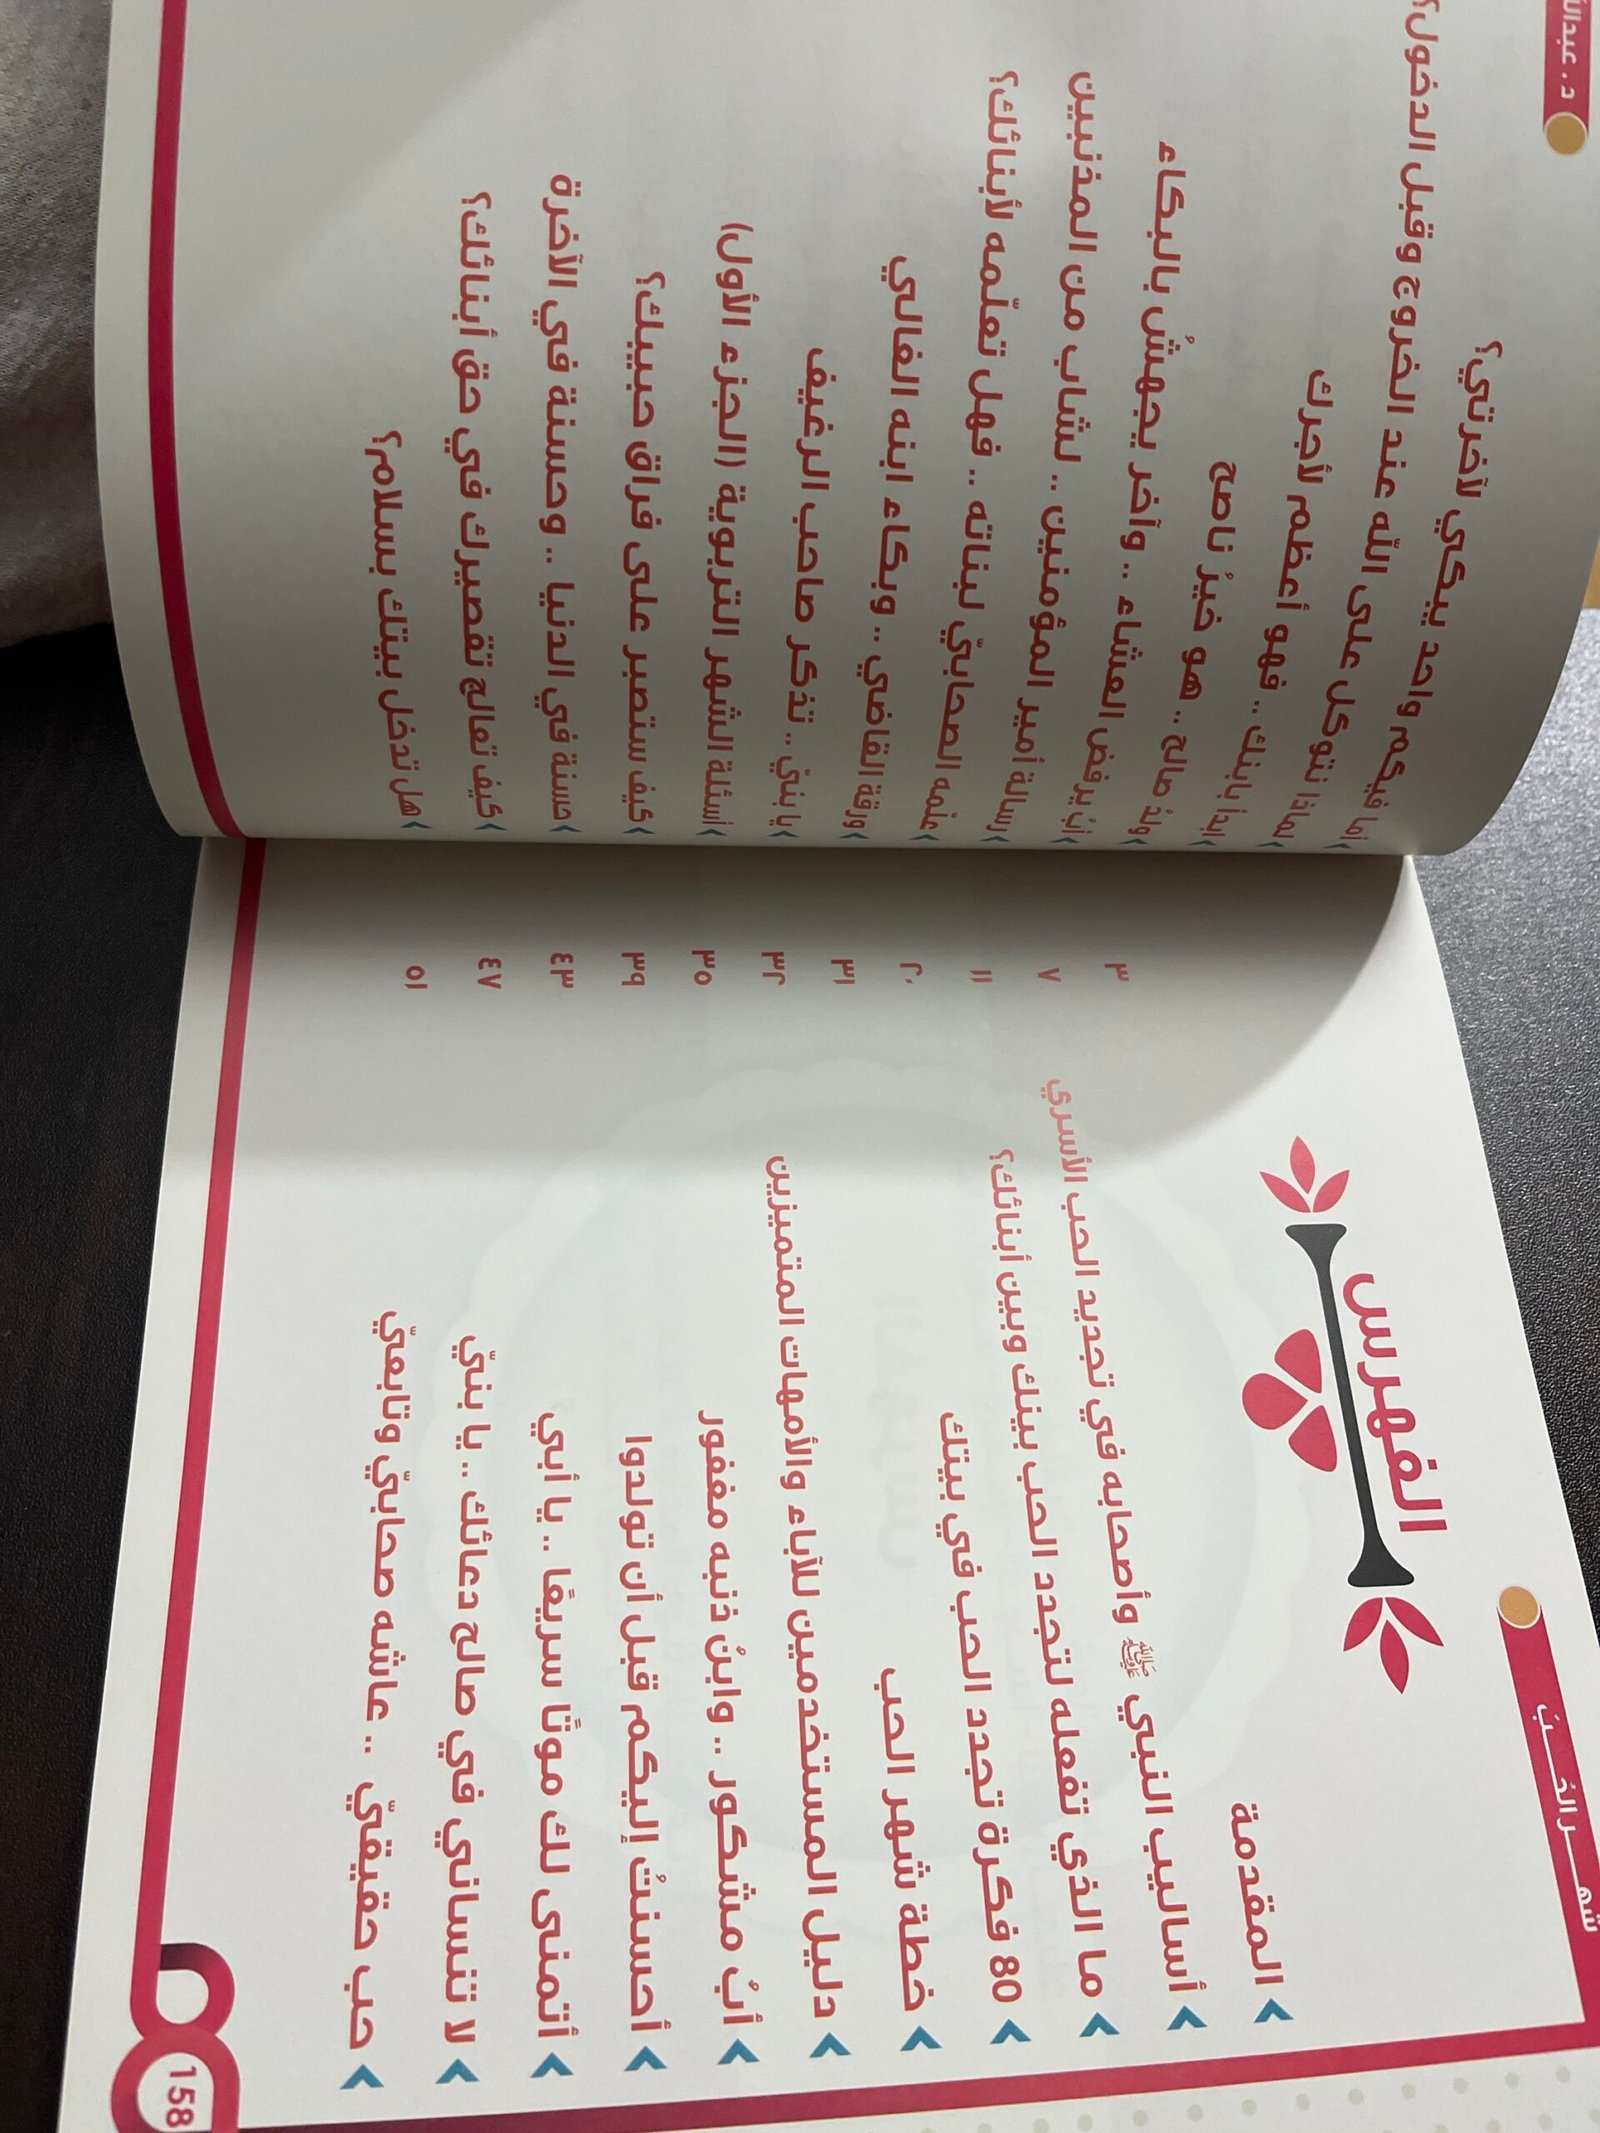 شهر الحُبّ
الفهرس
المقدمة ٣
أساليب النبي ﷺ وأصحابه في تجديد الحب الأسري ٧
ما الذي تفعله لتجدد الحب بينك وبين أبنائك؟ ١١
80 فكرة تجدد الحب في بيتك ٢٠
خطة شهر الحب ٣١
دليل المستخدمين للآباء والأمهات المتميزين ٣٢
أبٌ مشكور .. وابنٌ ذنبه مغفور ٣٥
أحسنتُ إليكم قبل أن تولدوا ٣٩
أتمنى لك موتًا سريعًا .. يا أبي ٤٣
لا تنساني في صالح دعائك .. يا بنيّ ٤٧
حب حقيقيّ .. عاشه صحابيّ وتابعيّ ٥١
158
د. عبد
أما فيكم واحد يبكي لآخرتي؟
لماذا نتوكل على الله عند الخروج وقبل الدخول؟
ابدأ بابنك .. فهو أعظم لأجرك
ولدٌ صالح .. هو خيرُ ناصح
أبٌ يرفض العشاء .. وآخر يجهشُ بالبكاء
رسالة أمير المؤمنين .. لشاب من المذنبين
علّمه الصحابيّ لبناته .. فهل تعلّمه لأبنائك؟
ورقة القاضي .. وبكاء ابنه الغالي
يا بنيّ .. تذكر صاحب الرغيف
أسئلة الشهر التربوية (الجزء الأول)
كيف ستصبر على فراق حبيبك؟
حسنة في الدنيا .. وحسنة في الآخرة
كيف تعالج تقصيرك في حق أبنائك؟
هل تدخل بيتك بسلام؟